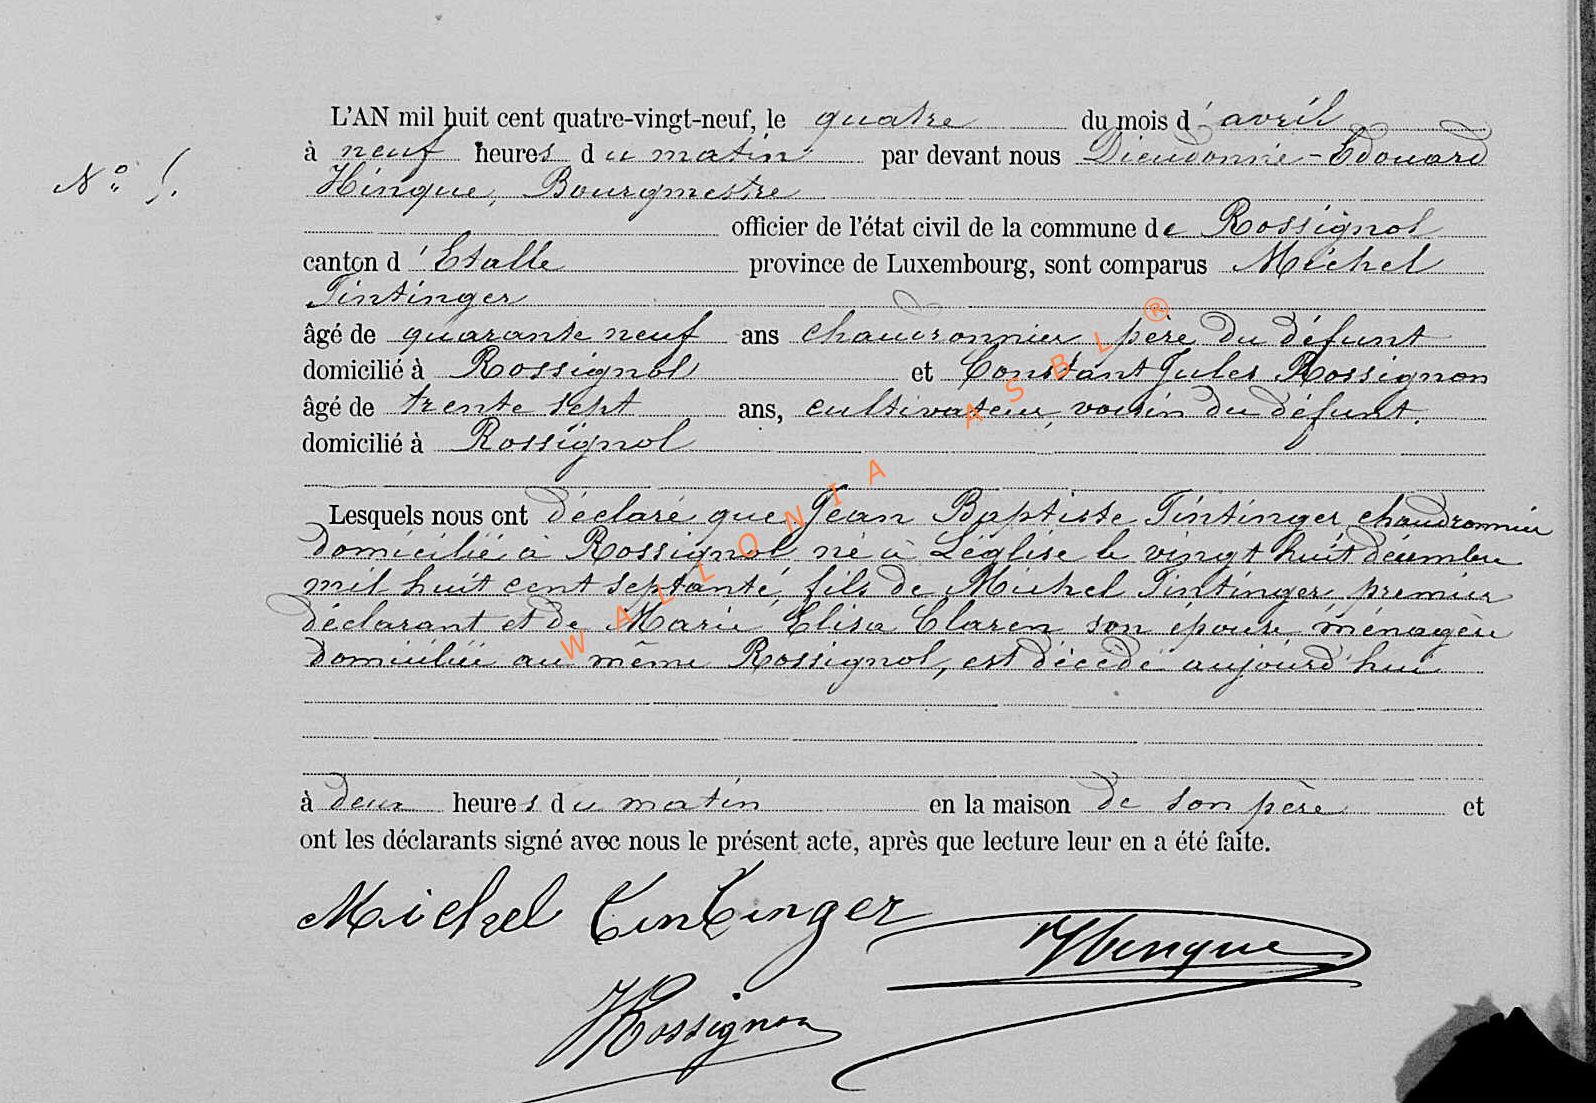 L'AN mil huit cent quatre-vingt-neuf, le quatre du mois d'avril
à neuf heures du matin par devant nous Dieudonné-Edouard
N° 5. Hinque, Bourgmestre
officier de l'état civil de la commune de Rossignol
canton d'Etalle province de Luxembourg, sont comparus Michel
Tintinger
âgé de quarante neuf ans chaudronnier père du défunt
domicilié à Rossignol et Constant Jules Rossignon
âgé de trente sept ans, cultivateur, voisin du défunt.
domicilié à Rossignol
Lesquels nous ont déclaré que Jean Baptiste Tintinger chaudronnier
domicilié à Rossignol né à Léglise le vingt huit décembre
mil huit cent septante, fils de Michel Tintinger premier
déclarant et de Marie Elise Claren son épouse ménagère
domiciliée au même Rossignol, est décédé aujourd'hui
à deux heures du matin en la maison de son père et
ont les déclarants signé avec nous le présent acte, après que lecture leur en a été faite.
Michel Tintinger
Hinque
Rossignon
WALLONIA ASBL ®